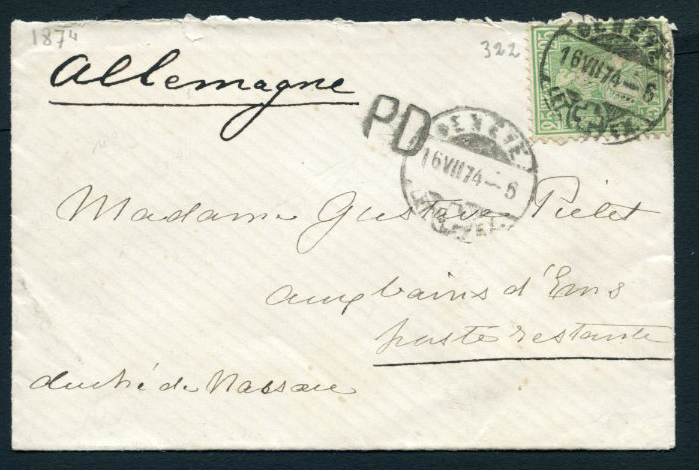 1874
322
Allemagne
25
GENÈVE
16 VII 74 - 6
PD
GENÈVE
16 VII 74 - 6
Madame Gustave Pictet
aux bains d'Ems
poste restante
duché de Nassau